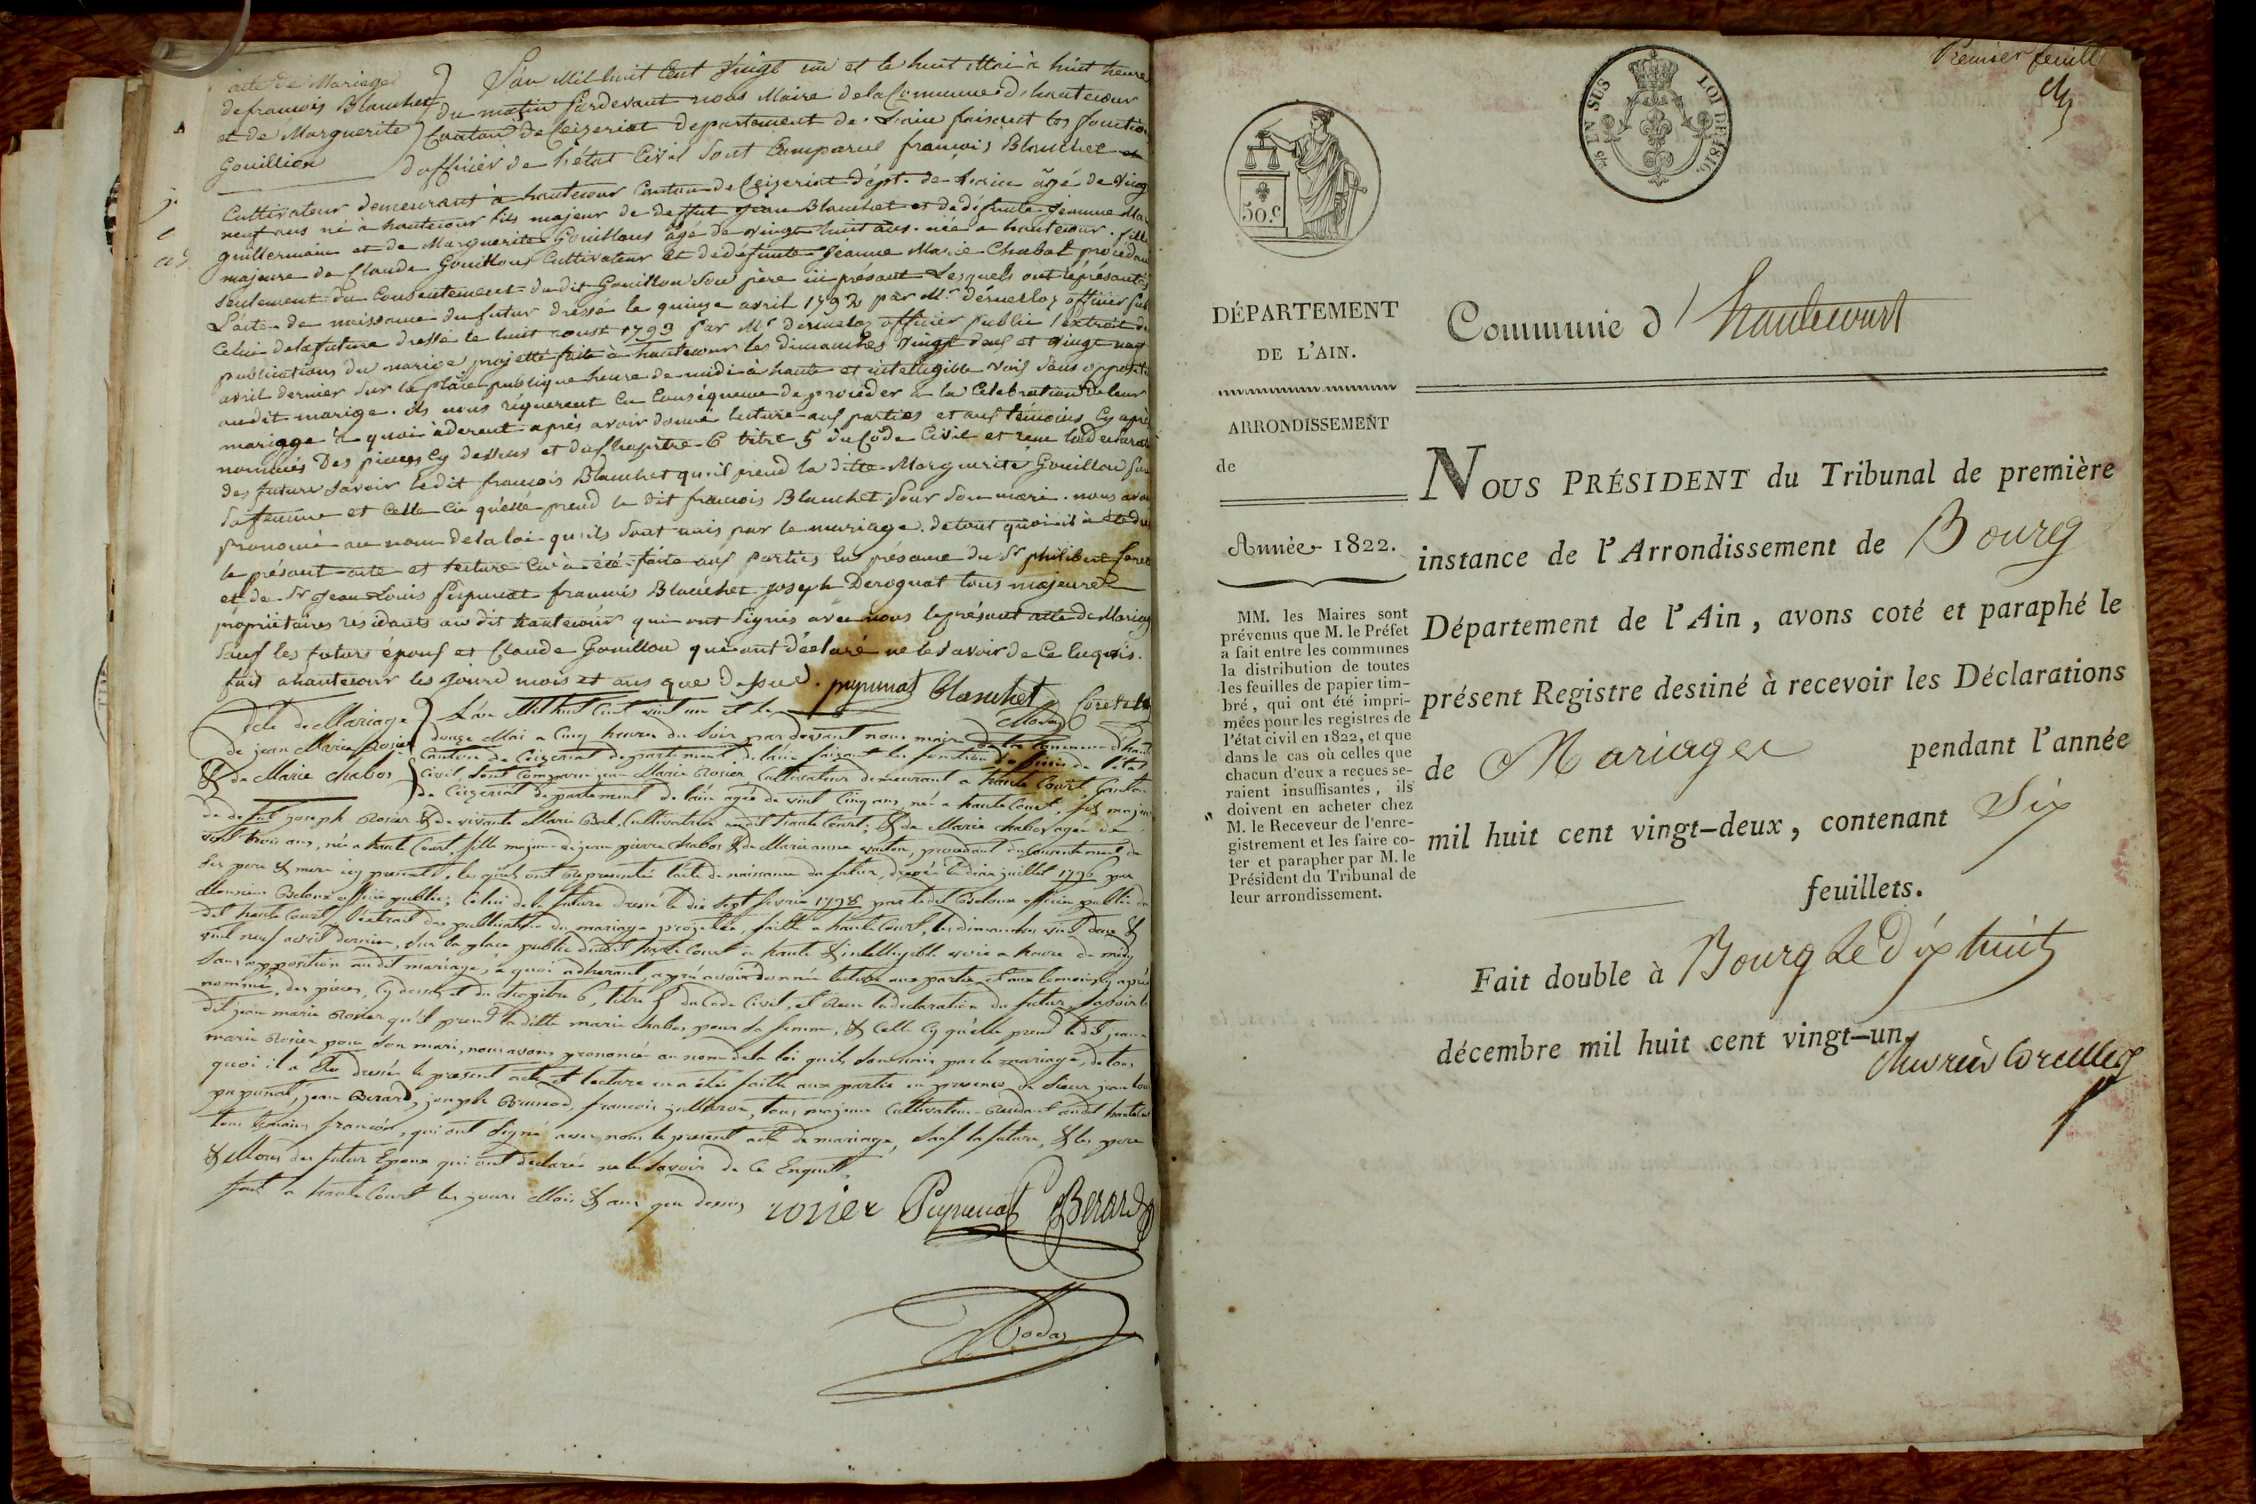 acte de Mariage
de francois Blanchet
et de Marguerite
Gouillion
L'an Mil huit Cent Vingt un et le huit Mai à huit heure
du matin Pardevant nous Maire de la Commune d'hautecour
Canton de Ceizeriat departement de L'ain faisant les fonction
d'officier de l'état Civil sont Comparus françois Blanchet
Cultivateur demeurant à hautecour Canton de Ceizeriat dépt. de L'ain âgé de Vingt
neuf ans né à hautecour fils majeur de deffut jean Blanchet et de défunte jeanne
guillermain et de Marguerite Gouillon âgé de Vingt huit ans. née a hautecour. fille
majeure de Claude Gouillon Cultivateur et de défunte jeanne Marie Chabot procédant
seulement du Consentement du dit Gouillon Son père ici présant Lesquels ont représantés
L'acte de naissance du futur dressé le quinze avril 1792 par Mr. officier
Celui de la future dressé le huit aoust 1793 par Mr officier public l'extrait de
publications du mariage projetté faite à hautecour les dimanches Vingt deux et Vingt neuf
avril dernier sur la place publique heure de midi à haute et intelligible Voix sans opposition
audit mariage. ils nous réquerent En Conséquence de procéder à la Célébration de leur
mariage à quoi aderent après avoir donné lecture aux parties et aux témoins Cy après
nommés Des pieces Cy dessus et du Chapitre 6 titre 5 du Code Civil et recu la déclaration
des futurs Savoir ledit françois Blanchet qu'il prend la ditte Marguerite Gouillon pour
sa femme et Celle Ci qu'elle prend le dit francois Blanchet pour Son mari. nous avons
prononcé au nom de la loi qu'ils sont unis par le mariage. de tout quoi il à été dressé
le présant acte et lecture En à été faite aux parties En présance du Sr philibert
et de Sr Jean Louis Pépunat francois Blanchet joseph Deroquat tous majeures
propriétaires residants au dit hautecour qui ont Signés avec nous le présent acte de Mariage
Sauf les futurs époux et Claude Gouillon qui ont déclaré ne le Savoir de Ce Enquis.
fait a hautecour les jours mois et ans que Dessus. pepunat Blanchet
acte de Mariage
de jean Marie Rosier
& de Marie Chabos
L'an Mil huit Cent vint un et le
douze Mai a Cinq heures du Soir par devant nous maire de la Commune d'haute
Canton de Ceizeriat departement de l'ain faisant les fonctions d'officier de l'état
Civil, Sont Comparus jean Marie Rosier Cultivateur demeurant a haute Court, Canton
de Ceizeriat departement de l'ain agé de vint Cinq ans, né a haute Court, fils majeur
de defut joseph Rosier & de vivante Marie Cultivatrice audit haute Court; & de Marie Chabos agée de
vint trois ans, née a haute Court, fille majeure de jean pierre Chabos & de Marie anne procedant du Consentement de
Ses pere & mere icy presents, lesquels ont representés l'acte de naissance du futur, dressé le dix juillet 1796 par
Monsieur officier public; Celui de la future dressé le dix Sept fevrier 1798 par ledit officier public du
dit haute Court, l'extrait des publications du mariage projettée, faitte a haute Court, les dimanches vint deux &
vint neuf avril dernier, Sur la place public dudit haute Court a haute & intelligible voix a heure de midy
Sans opposition audit mariage, a quoi adherant, apré avoir donnée lecture aux parties & aux temoins cy après
nommés, des pieces, Cy dessus et du Chapitre 6, titre 5 du Code Civil, et Reçu la declaration du futur, Savoir le
dit jean marie Rosier qu'il prend la ditte marie Chabos pour Sa femme, & Celle Cy qu'elle prend ledit jean
marie Rosier pour Son mari, nous avons prononcé au nom de la loi qu'ils Sont unis par le mariage, de tous
quoi il a été dressé le present acte et lecture en a été faitte aux parties en presence de Sieur jean Louis
pepunat, jean Berard, joseph francois tous majeurs Cultivateurs Residant audit hautecourt
tous temoins francois, qui ont Signé avec nous le present acte de mariage, Sauf la future, & les pere
& Mere des futur Epoux qui ont declarée ne le Savoir de Ce Enquit,
fait a haute Court les jours Mois & ans que dessus rosier Pepunat Berard
Premier feuillet
EN SUS
LOI DE 1816.
50.c
DÉPARTEMENT
DE L'AIN.
ARRONDISSEMENT
de
Année 1822.
MM. les Maires sont
prévenus que M. le Préfet
a fait entre les communes
la distribution de toutes
les feuilles de papier tim-
bré, qui ont été impri-
mées pour les registres de
l'état civil en 1822, et que
dans le cas où celles que
chacun d'eux a reçues se-
raient insuffisantes, ils
doivent en acheter chez
M. le Receveur de l'enre-
gistrement et les faire co-
ter et parapher par M. le
Président du Tribunal de
leur arrondissement.
Commune d'hautecourt
NOUS PRÉSIDENT du Tribunal de première
instance de l'Arrondissement de Bourg
Département de l'Ain, avons coté et paraphé le
présent Registre destiné à recevoir les Déclarations
de Mariages pendant l'année
mil huit cent vingt-deux, contenant Six
feuillets.
Fait double à Bourg Le dix huit
décembre mil huit cent vingt-un.